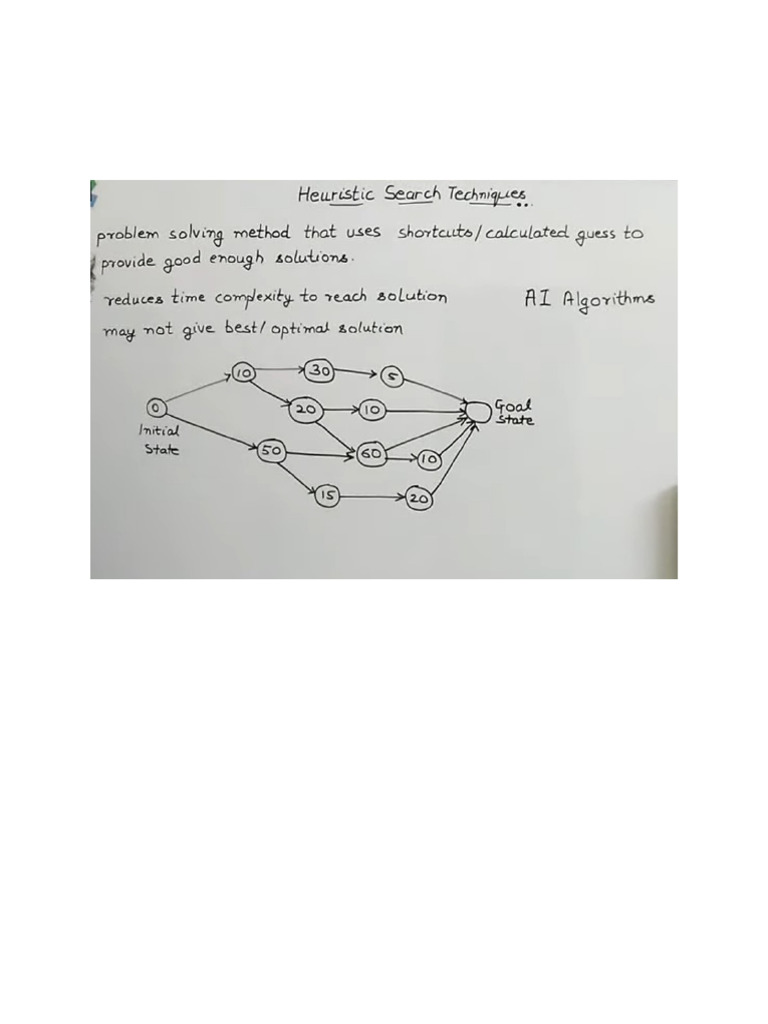 Heuristic Search Techniques...
problem solving method that uses shortcuts/calculated guess to
provide good enough solutions.
reduces time complexity to reach solution AI Algorithms
may not give best/optimal solution
10 30 5
0 20 10 Goal
State
Initial
State
50 60 10
15 20